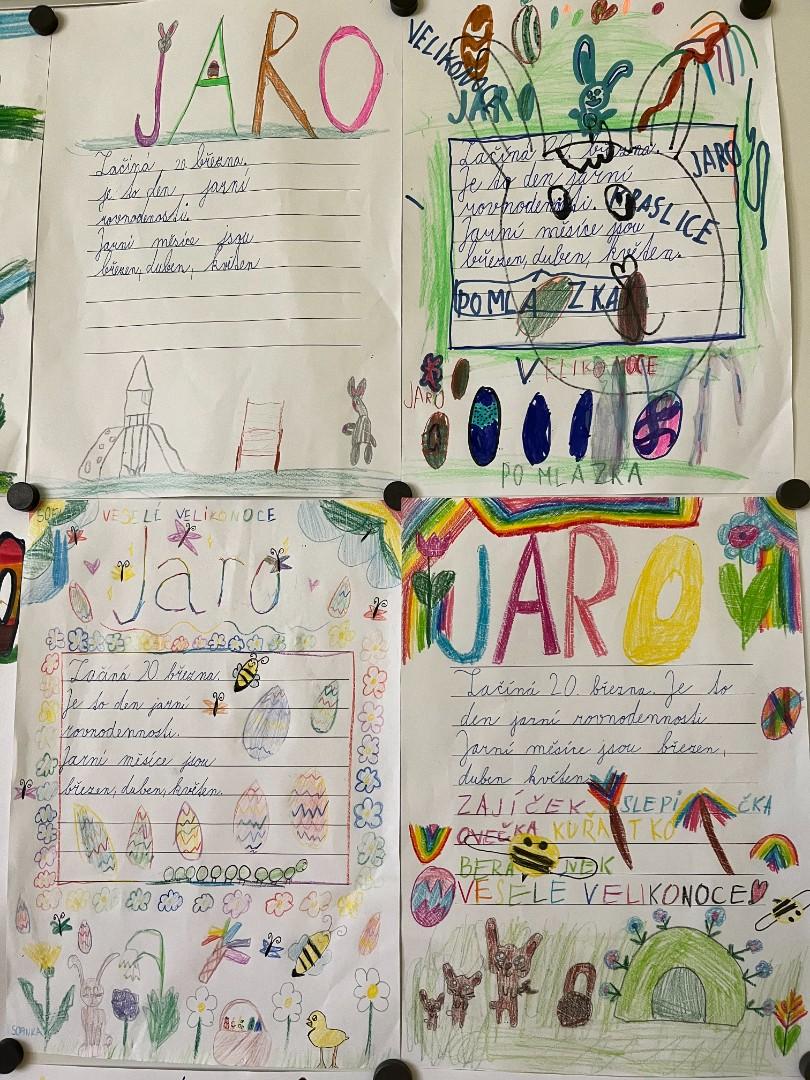 JARO
Začíná 20 března.
je to den jarní
rovnodenosti.
Jarní měsíce jsou
březen, duben, květen
VELIKONOCE
JARO
Začíná 20 března.
JARO
Je to den jarní
rovnodennosti.
KRASLICE
Jarní měsíce jsou
březen, duben, květen.
POMLÁZKA
VELIKONOCE
JARO
POMLÁZKA
SOFI
VESELÉ VELIKONOCE
Jaro
Začíná 20 března.
Je to den jarní
rovnodennosti.
Jarní měsíce jsou
březen, duben, květen.
SOFINKA
JARO
Začíná 20. března. Je to
den jarní rovnodennosti
Jarní měsíce jsou březen,
duben květen.
ZAJÍČEK SLEPIČKA
OVEČKA KUŘÁTKO
BERÁNEK
VESELÉ VELIKONOCE